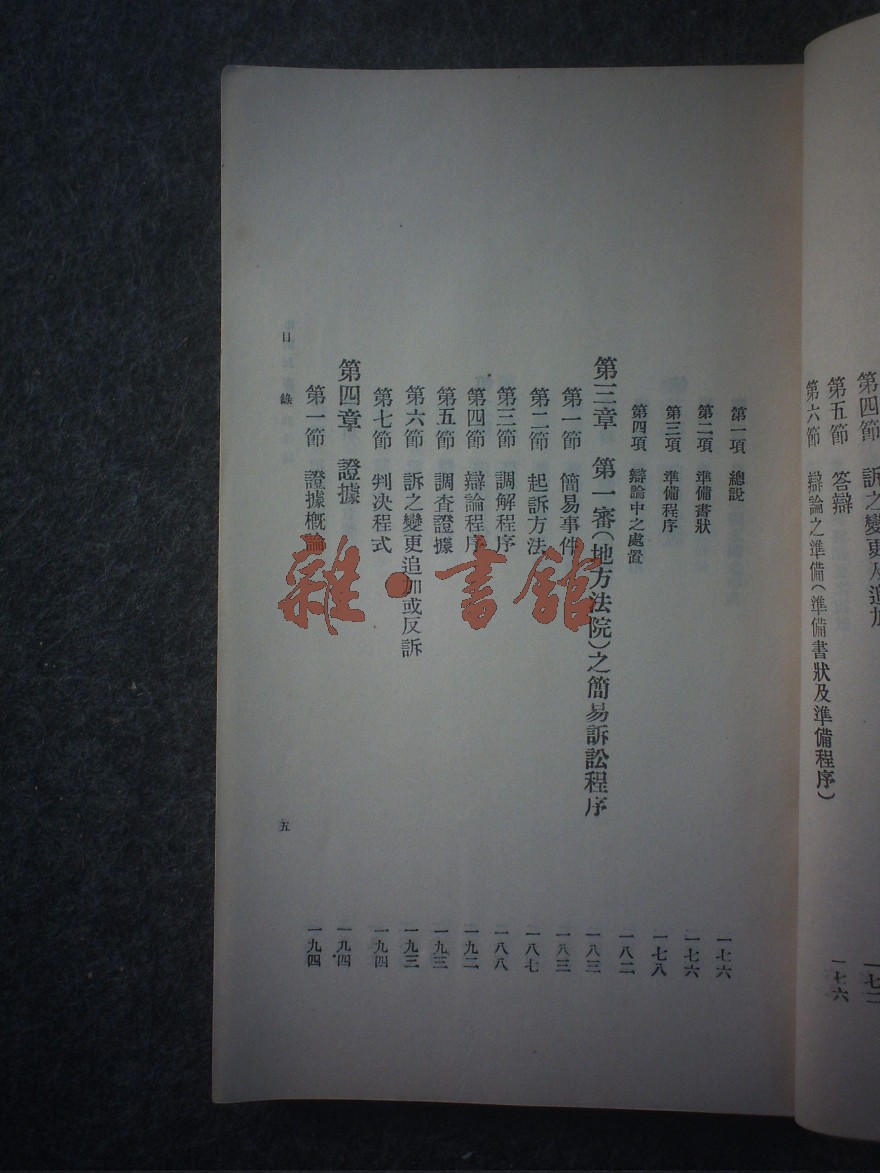 第四節 訴之變更及追加 一七二
第五節 答辯
第六節 辯論之準備(準備書狀及準備程序) 一七六
第一項 總說 一七六
第二項 準備書狀 一七六
第三項 準備程序 一七八
第四項 辯論中之處置 一八二
第三章 第一審(地方法院)之簡易訴訟程序 一八三
第一節 簡易事件 一八三
第二節 起訴方法 一八七
第三節 調解程序 一八八
第四節 辯論程序 一九二
第五節 調查證據 一九三
第六節 訴之變更追加或反訴 一九三
第七節 判决程式 一九四
第四章 證據 一九四
第一節 證據槪論 一九四
目錄 五
雜·書館